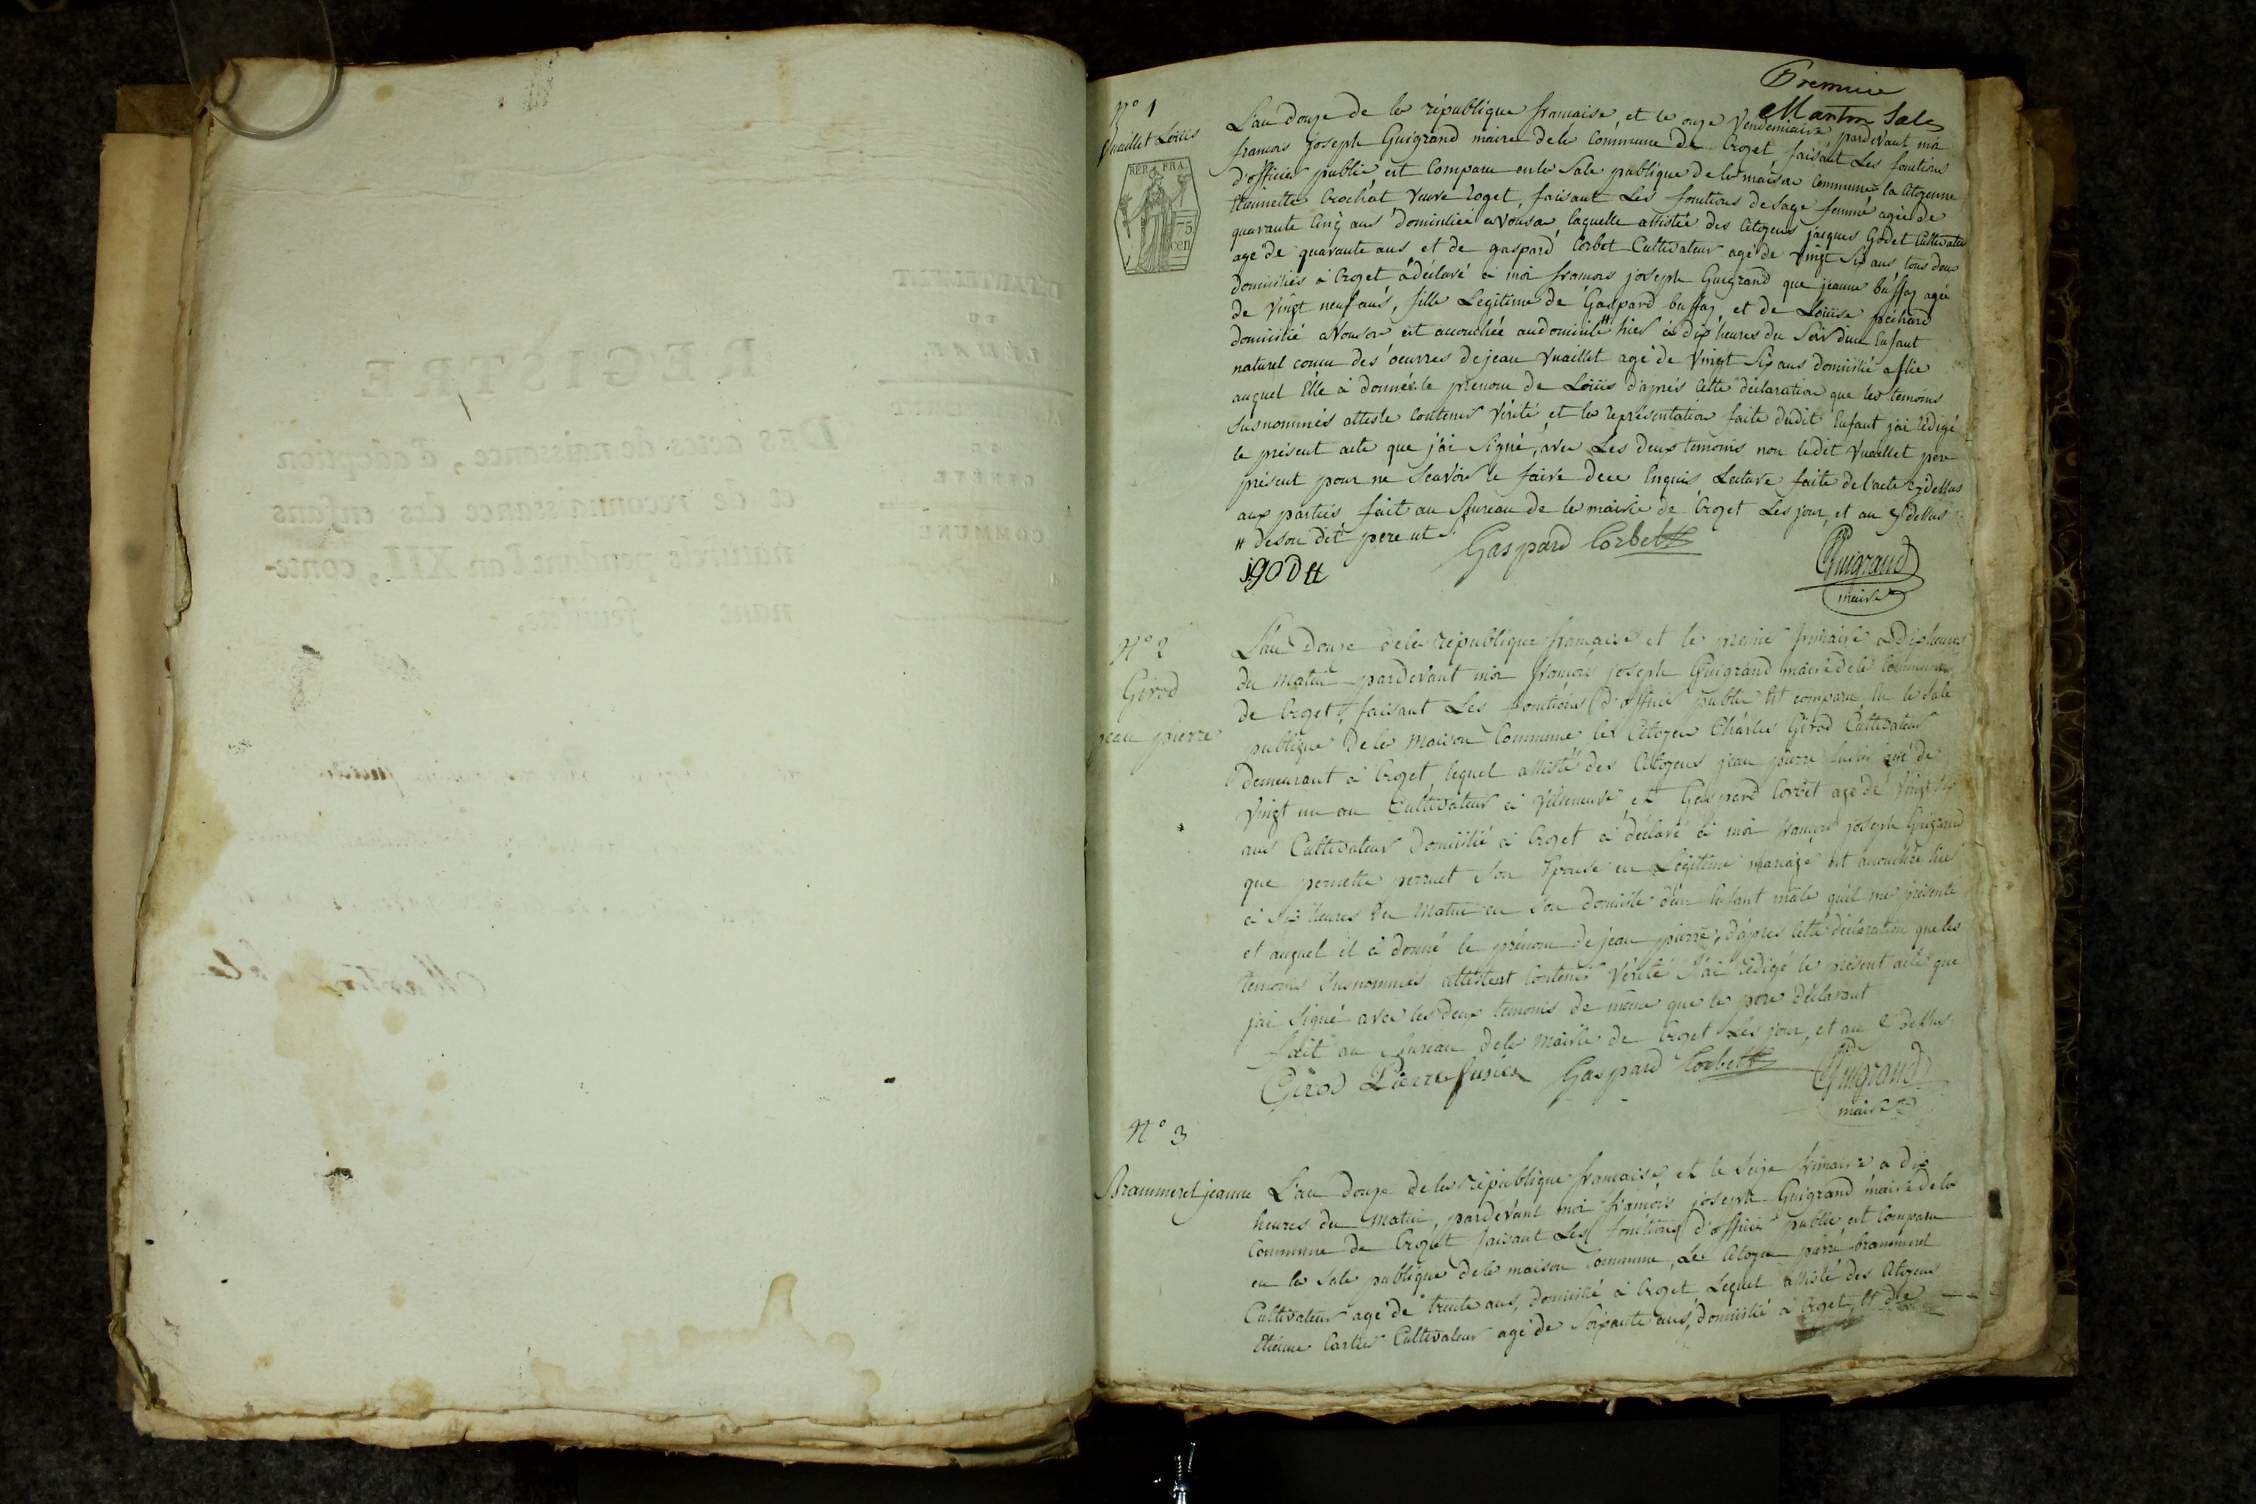 Premier
Manton Sales
N° 1
Vuaillet Loüis
REP. FRA.
75
cen
L'an douze de la république francaise, et le onze Vendemiaire pardevant moi
francois joseph Guigrand maire dela commune de Crozet faisant Les fonctions
d'officier public est Comparu en la Sale publique de la maison Commune la Citoyenne
Etiennette Crochat veuve Roget, faisant Les fonctions de Sage femme agée de
quarante Cinq ans domiciliée avouson laquelle assistée des Citoyens jacques Godet Cultivateur
age de quarante ans et de gaspard Corbet Cultivateur agé de Vingt Six ans tous deux
domiciliés à Crozet à déclaré à moi francois joseph Guigrand que jeanne buffaz agée
de Vingt neuf ans, fille Legitime de Gaspard buffaz et de Loüise pechard
domicilié avouson est accouchée audomicile # hier à dix heures du Soir d'un Enfant
naturel concu des oeuvres de jean Vuaillet agé de Vingt Six ans domicilié aflie
auquel Elle à donnée le prenom de Loüis d'aprés Cette declaration que les temoins
Susnommés atteste Contenir Vérité et la représentation faite dudit Enfant j'ai rédigé
le présent acte que j'ai Signé, avec Les deux temoins non ledit Vuaillet pere
présent pour ne Scavoir le faire dece Enquis Lecture faite de l'acte cy dessus
aux parties fait au Bureau de la mairie de Crozet Les jour, et an cy dessus
# de son dit pere et
Gaspard Corbet
jgodet
Guigrand
maire
N° 2
Girod
jean pierre
L'an Douze dela république francaise et le premier frimaire à Dix heures
du matin pardevant moi francois joseph Guigrand maire dela Commune
de Crozet, faisant Les fonctions d'officier public est comparu En la Sale
publique dela Maison Commune le Citoyen Charles Girod Cultivateur
Demeurant à Crozet, lequel assisté des Citoyens jean pierre fusier agé de
Vingt un an Cultivateur à Villeneuve et Gaspard Corbet agé de Vingt Six
ans Cultivateur domicilié à Crozet à déclaré à moi francois joseph Guigrand
que pernette perruet Son Epouse en Légitime mariage est accouchée hier
à Six heures du Matin en Son domicile d'un Enfant mâle qu'il me présente
et auquel il à donné le prénom de jean pierre, d'apres cette déclaration que les
temoins Susnommés attestent Contenir Vérité J'ai rédigé le présent acte que
j'ai Signé avec les deux temoins de même que le pere déclarant
fait au Bureau dela Mairie de Crozet Les jour, et an C dessus
Girod Pierre fusier Gaspard Corbet
Guigrand
maire
N° 3
Brammeret jeanne
L'an douze dela république francaise, et le Seize frimaire a dix
heures du matin, pardevant moi francois joseph Guigrand maire dela
Commune de Crozet faisant Les fonctions d'officier public, est Comparu
en la Sale publique dela maison Commune, Le Citoyen pierre brammeret
Cultivateur agé de trente ans, domicilié à Crozet Lequel assisté des Citoyens
Etienne Carlier Cultivateur agé de Soixante ans, domicilié à Crozet, et de